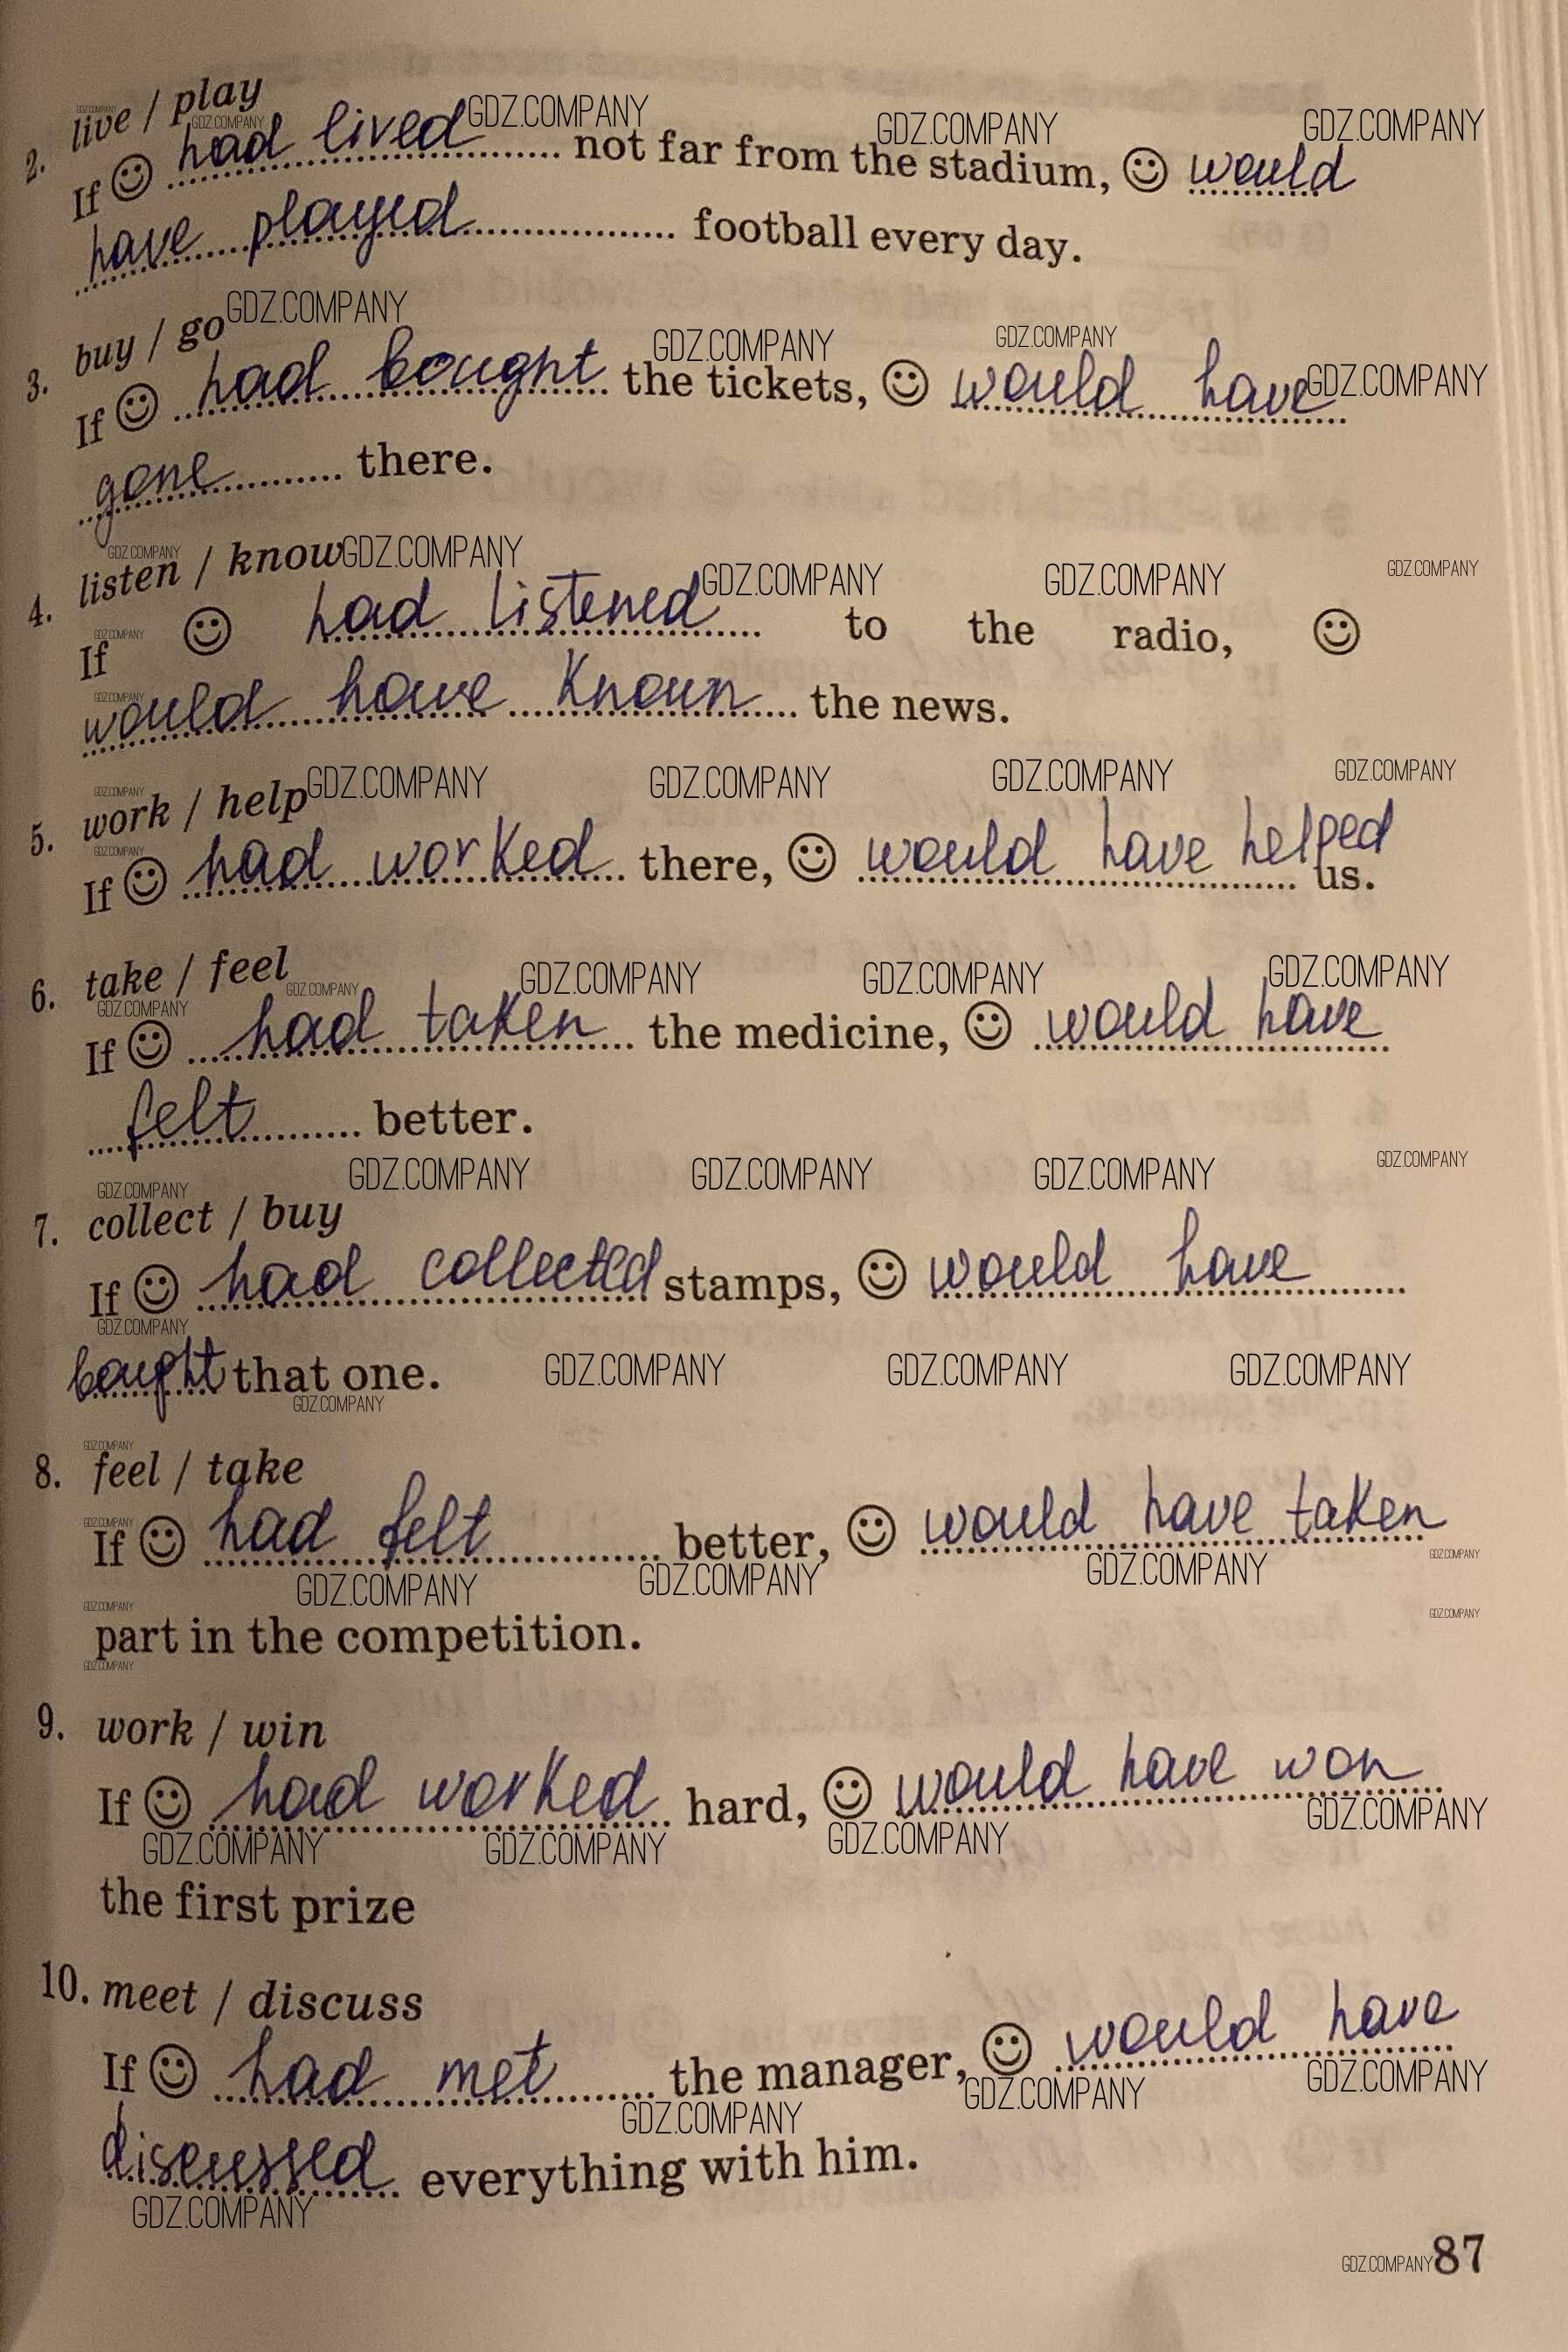 2. live / play
If ☺ had lived not far from the stadium, ☺ would
have played football every day.
3. buy / go
If ☺ had bought the tickets, ☺ would have
gone there.
4. listen / know
If ☺ had listened to the radio, ☺
would have known the news.
5. work / help
If ☺ had worked there, ☺ would have helped us.
6. take / feel
If ☺ had taken the medicine, ☺ would have
felt better.
7. collect / buy
If ☺ had collected stamps, ☺ would have
bought that one.
8. feel / take
If ☺ had felt better, ☺ would have taken
part in the competition.
9. work / win
If ☺ had worked hard, ☺ would have won
the first prize
10. meet / discuss
If ☺ had met the manager, ☺ would have
discussed everything with him.
GDZ.COMPANY
87